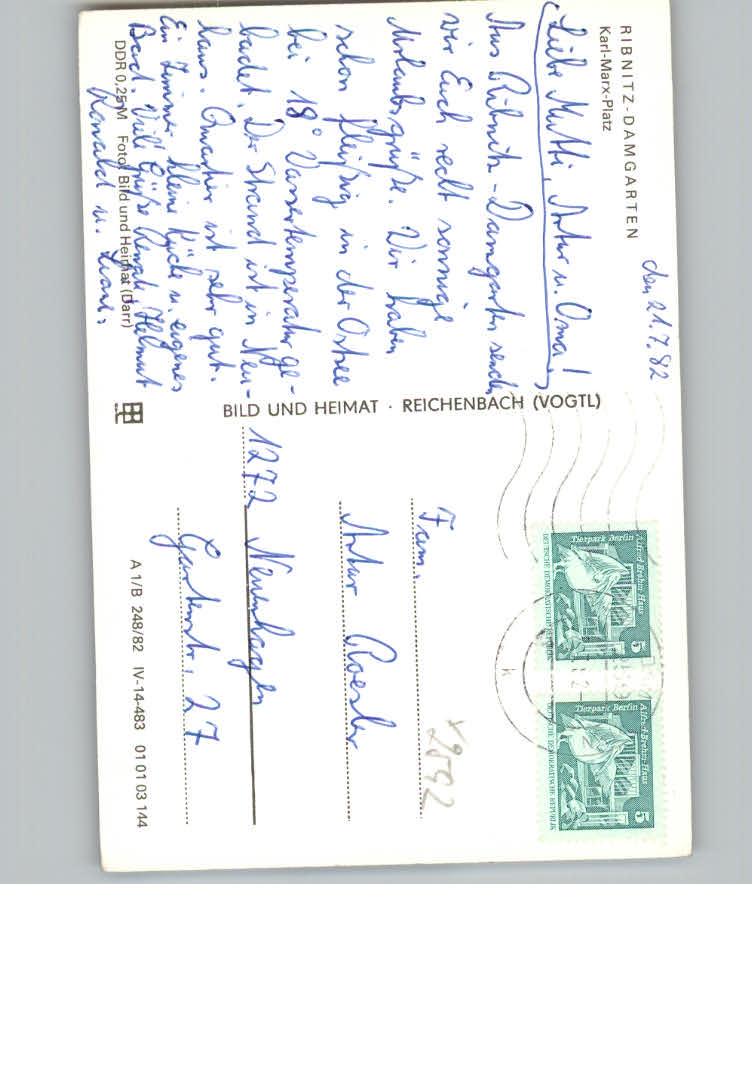 RIBNITZ-DAMGARTEN
Karl-Marx-Platz
den 21.7.82
Liebe Mutti, Artur u. Oma!
Aus Ribnitz-Damgarten senden
wir Euch recht sonnige
Urlaubsgrüße. Wir haben
schon fleißig in der Ostsee
bei 18° Wassertemperatur ge-
badet. Der Strand ist in Neu-
haus. Quartier ist sehr gut.
Ein Zimmer kleine Küche u. eigenes
Bad. Viele Grüße Renate, Helmut
Ronald u.
DDR 0,25 M Foto: Bild und Heimat (Darr)
BILD UND HEIMAT · REICHENBACH (VOGTL)
Tierpark Berlin Alfred-Brehm-Haus
DEUTSCHE DEMOKRATISCHE REPUBLIK
5
Tierpark Berlin Alfred-Brehm-Haus
DEUTSCHE DEMOKRATISCHE REPUBLIK
5
Fam.
Artur Roesler
1272 Neuenhagen
Gartenstr. 27
A 1/B 248/82 IV-14-483 01 01 03 144